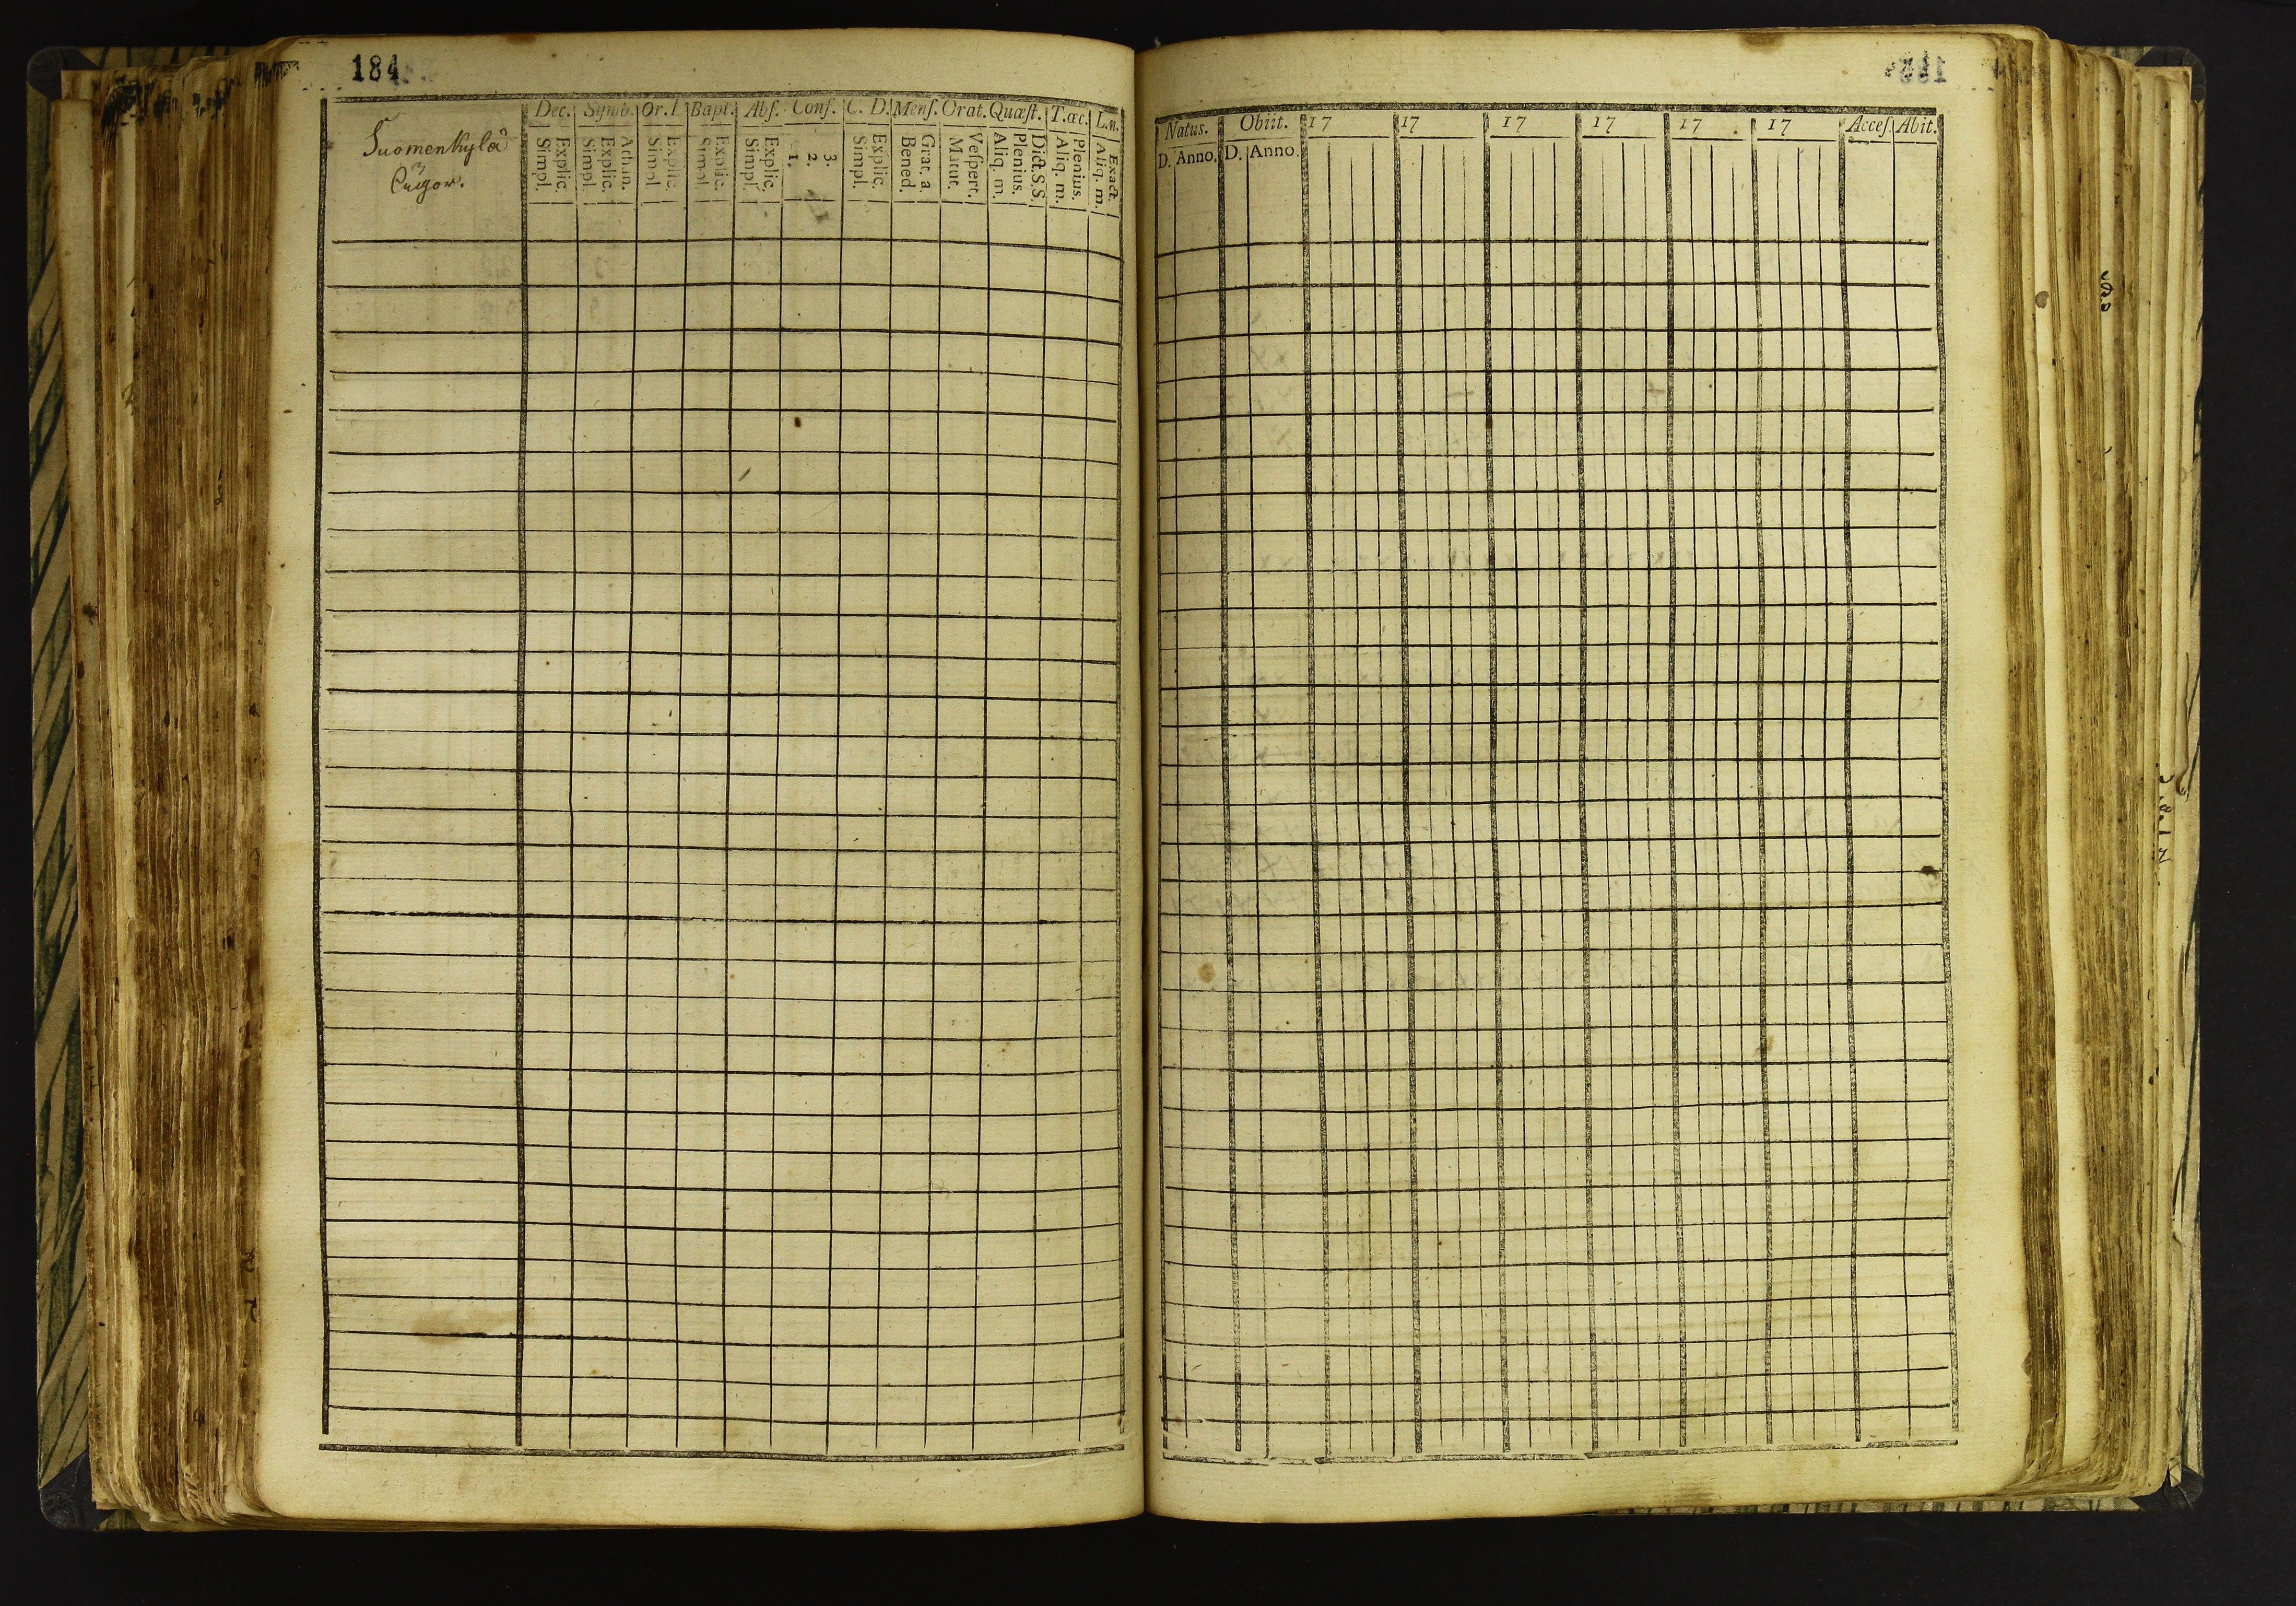 184
Dec. Symb. Or. D Bapt. Abſ. Conf. C. D. Menſ. Orat. Quæſt. T. œc. L. n.
Suomenkylä
Explic. Simpl. Athan. Explic. Simpl. Explic. Simpl. Explic. Simpl. Explic. Simpl. 3. 2. 1. Explic. Simpl. Grat. a. Bened. Veſpert. Matut. Dict. S. S. Plenius. Aliq. m. Plenius. Aliq. m. Exact. Aliq. m.
Natus. Obiit. 17 17 17 17 17 17 Acceſ. Abit.
D. Anno. D. Anno.